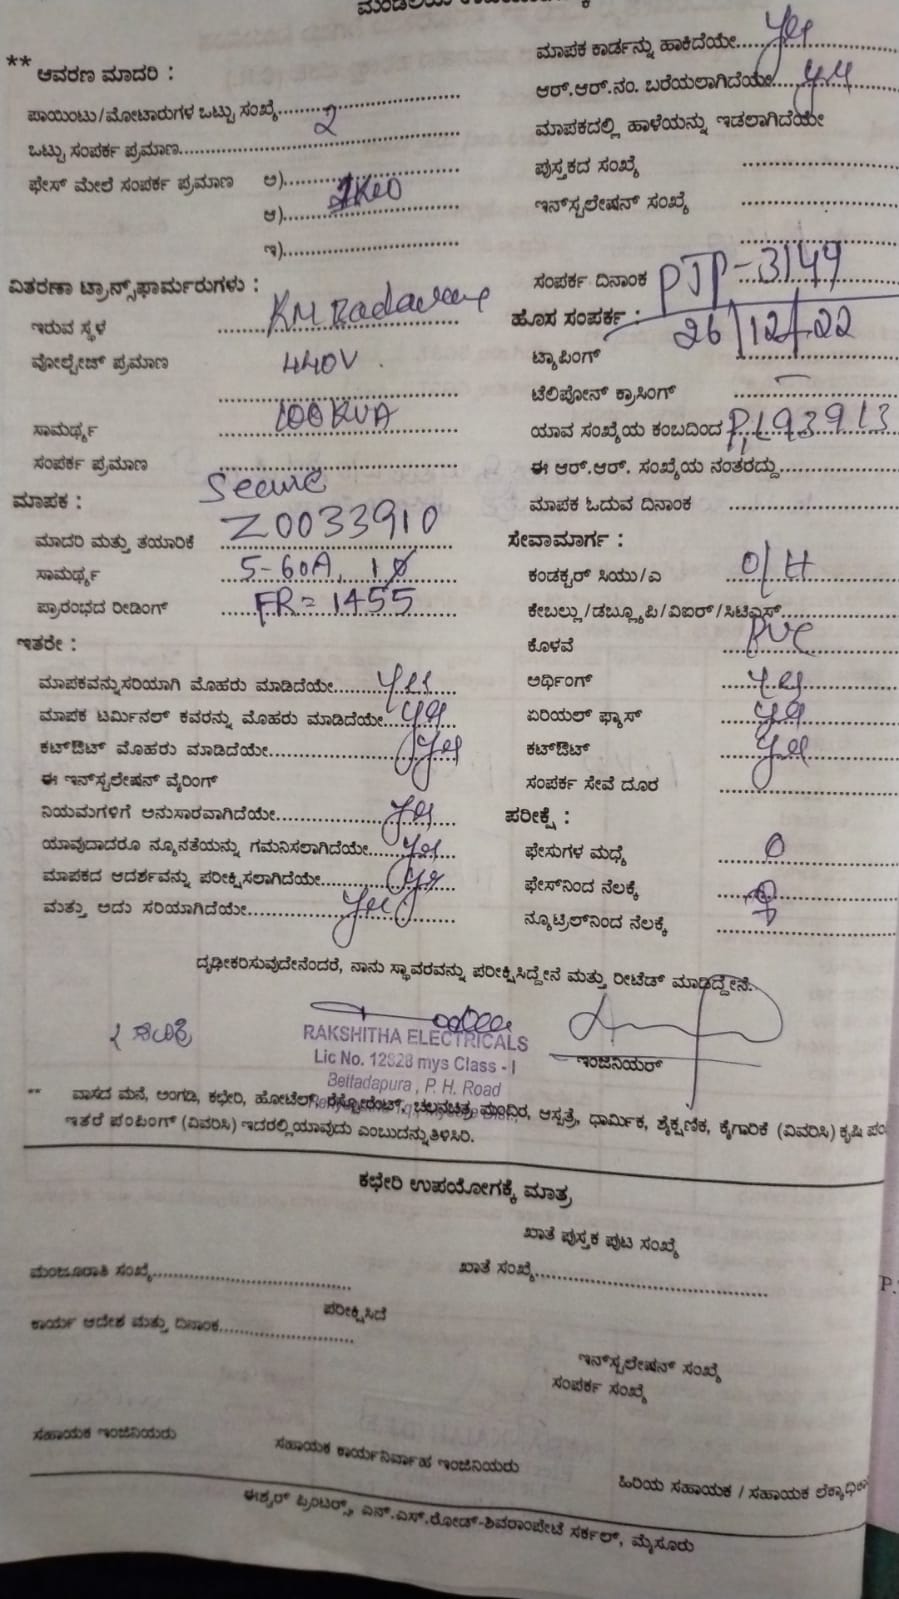 ** ಆವರಣ ಮಾದರಿ :
ಪಾಯಿಂಟು/ಮೋಟಾರುಗಳ ಒಟ್ಟು ಸಂಖ್ಯೆ 2
ಒಟ್ಟು ಸಂಪರ್ಕ ಪ್ರಮಾಣ
ಫೇಸ್ ಮೇಲೆ ಸಂಪರ್ಕ ಪ್ರಮಾಣ ಅ)
ಆ)
ಇ)
ವಿತರಣಾ ಟ್ರಾನ್ಸ್‌ಫಾರ್ಮರುಗಳು :
ಇರುವ ಸ್ಥಳ
ವೋಲ್ಟೇಜ್ ಪ್ರಮಾಣ 440V
ಸಾಮರ್ಥ್ಯ 100KVA
ಸಂಪರ್ಕ ಪ್ರಮಾಣ
ಮಾಪಕ : Secure
ಮಾದರಿ ಮತ್ತು ತಯಾರಿಕೆ Z0033910
ಸಾಮರ್ಥ್ಯ 5-60A, 1Ø
ಪ್ರಾರಂಭದ ರೀಡಿಂಗ್ FR = 1455
ಇತರೇ :
ಮಾಪಕವನ್ನು ಸರಿಯಾಗಿ ಮೊಹರು ಮಾಡಿದೆಯೇ yes
ಮಾಪಕ ಟರ್ಮಿನಲ್ ಕವರನ್ನು ಮೊಹರು ಮಾಡಿದೆಯೇ yes
ಕಟ್‌ಔಟ್ ಮೊಹರು ಮಾಡಿದೆಯೇ yes
ಈ ಇನ್‌ಸ್ಟಲೇಷನ್ ವೈರಿಂಗ್
ನಿಯಮಗಳಿಗೆ ಅನುಸಾರವಾಗಿದೆಯೇ yes
ಯಾವುದಾದರೂ ನ್ಯೂನತೆಯನ್ನು ಗಮನಿಸಲಾಗಿದೆಯೇ yes
ಮಾಪಕದ ಆದರ್ಶವನ್ನು ಪರೀಕ್ಷಿಸಲಾಗಿದೆಯೇ yes
ಮತ್ತು ಅದು ಸರಿಯಾಗಿದೆಯೇ yes
ಮಾಪಕ ಕಾರ್ಡನ್ನು ಹಾಕಿದೆಯೇ yes
ಆರ್.ಆರ್.ನಂ. ಬರೆಯಲಾಗಿದೆಯೇ yes
ಮಾಪಕದಲ್ಲಿ ಹಾಳೆಯನ್ನು ಇಡಲಾಗಿದೆಯೇ
ಪುಸ್ತಕದ ಸಂಖ್ಯೆ
ಇನ್‌ಸ್ಟಲೇಷನ್ ಸಂಖ್ಯೆ
ಸಂಪರ್ಕ ದಿನಾಂಕ PJP-3144
ಹೊಸ ಸಂಪರ್ಕ : 26/12/22
ಟ್ಯಾಪಿಂಗ್
ಟೆಲಿಪೋನ್ ಕ್ರಾಸಿಂಗ್ —
ಯಾವ ಸಂಖ್ಯೆಯ ಕಂಬದಿಂದ
ಈ ಆರ್.ಆರ್. ಸಂಖ್ಯೆಯ ನಂತರದ್ದು
ಮಾಪಕ ಓದುವ ದಿನಾಂಕ
ಸೇವಾಮಾರ್ಗ :
ಕಂಡಕ್ಟರ್ ಸಿಯು/ಎ O/H
ಕೇಬಲ್ಲು/ಡಬ್ಲ್ಯೂಪಿ/ವಿಐರ್/ಸಿಟಿಎಸ್
ಕೊಳವೆ PVC
ಅರ್ಥಿಂಗ್ yes
ಏರಿಯಲ್ ಫ್ಯಾಸ್ yes
ಕಟ್‌ಔಟ್ yes
ಸಂಪರ್ಕ ಸೇವೆ ದೂರ
ಪರೀಕ್ಷೆ :
ಫೇಸುಗಳ ಮಧ್ಯೆ 0
ಫೇಸ್‌ನಿಂದ ನೆಲಕ್ಕೆ
ನ್ಯೂಟ್ರಿಲ್‌ನಿಂದ ನೆಲಕ್ಕೆ
ದೃಢೀಕರಿಸುವುದೇನೆಂದರೆ, ನಾನು ಸ್ಥಾವರವನ್ನು ಪರೀಕ್ಷಿಸಿದ್ದೇನೆ ಮತ್ತು ರೀಟೆಡ್ ಮಾಡಿದ್ದೇನೆ.
RAKSHITHA ELECTRICALS
Lic No. 12828 mys Class - I
Bettadapura, P. H. Road
ಇಂಜಿನಿಯರ್
** ವಾಸದ ಮನೆ, ಅಂಗಡಿ, ಕಛೇರಿ, ಹೋಟೆಲ್, ರೆಸ್ಟೋರೆಂಟ್, ಚಲನಚಿತ್ರ ಮಂದಿರ, ಆಸ್ಪತ್ರೆ, ಧಾರ್ಮಿಕ, ಶೈಕ್ಷಣಿಕ, ಕೈಗಾರಿಕೆ (ವಿವರಿಸಿ) ಕೃಷಿ ಪಂ
ಇತರೆ ಪಂಪಿಂಗ್ (ವಿವರಿಸಿ) ಇದರಲ್ಲಿಯಾವುದು ಎಂಬುದನ್ನು ತಿಳಿಸಿರಿ.
ಕಛೇರಿ ಉಪಯೋಗಕ್ಕೆ ಮಾತ್ರ
ಖಾತೆ ಪುಸ್ತಕ ಪುಟ ಸಂಖ್ಯೆ
ಮಂಜೂರಾತಿ ಸಂಖ್ಯೆ
ಖಾತೆ ಸಂಖ್ಯೆ
ಪರೀಕ್ಷಿಸಿದೆ
ಕಾರ್ಯ ಆದೇಶ ಮತ್ತು ದಿನಾಂಕ
ಇನ್‌ಸ್ಟಲೇಷನ್ ಸಂಖ್ಯೆ
ಸಂಪರ್ಕ ಸಂಖ್ಯೆ
ಸಹಾಯಕ ಇಂಜಿನಿಯರು
ಸಹಾಯಕ ಕಾರ್ಯನಿರ್ವಾಹ ಇಂಜಿನಿಯರು
ಹಿರಿಯ ಸಹಾಯಕ / ಸಹಾಯಕ
ಈಶ್ವರ್ ಪ್ರಿಂಟರ್ಸ್, ಎನ್.ಎಸ್.ರೋಡ್-ಶಿವರಾಂಪೇಟೆ ಸರ್ಕಲ್, ಮೈಸೂರು